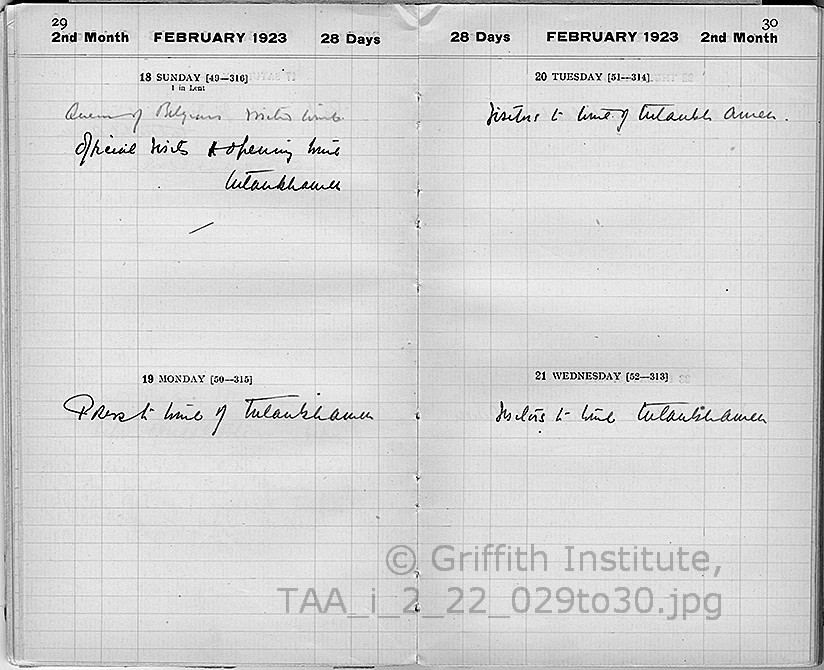 29
2nd Month FEBRUARY 1923 28 Days
18 SUNDAY [49—316]
1 in Lent
Queen of Belgians visited tomb
Official visits & opening tomb
Tutankhamen
19 MONDAY [50—315]
Press to tomb of Tutankhamen
30
28 Days FEBRUARY 1923 2nd Month
20 TUESDAY [51—314]
Visitors to tomb of Tutankh Amen.
21 WEDNESDAY [52—313]
Visitors to tomb Tutankhamen
© Griffith Institute,
TAA_i_2_22_029to30.jpg